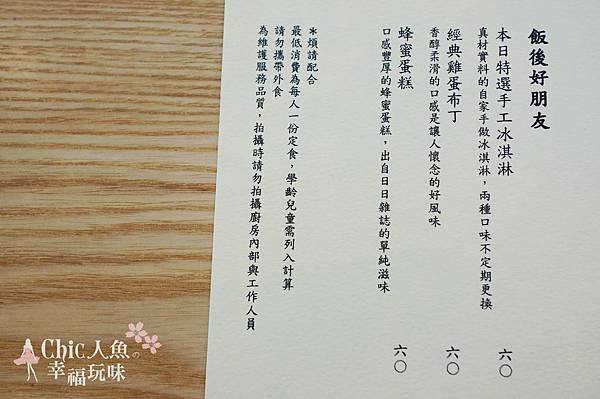 飯後好朋友
本日特選手工冰淇淋 六〇
真材實料的自家手做冰淇淋，兩種口味不定期更換
經典雞蛋布丁 六〇
香醇柔滑的口感是讓人懷念的好風味
蜂蜜蛋糕 六〇
口感豐厚的蜂蜜蛋糕，出自日日雜誌的單純滋味
＊煩請配合
最低消費為每人一份定食，學齡兒童需列入計算
請勿攜帶外食
為維護服務品質，拍攝時請勿拍攝廚房內部與工作人員
Chic人魚の
幸福玩味